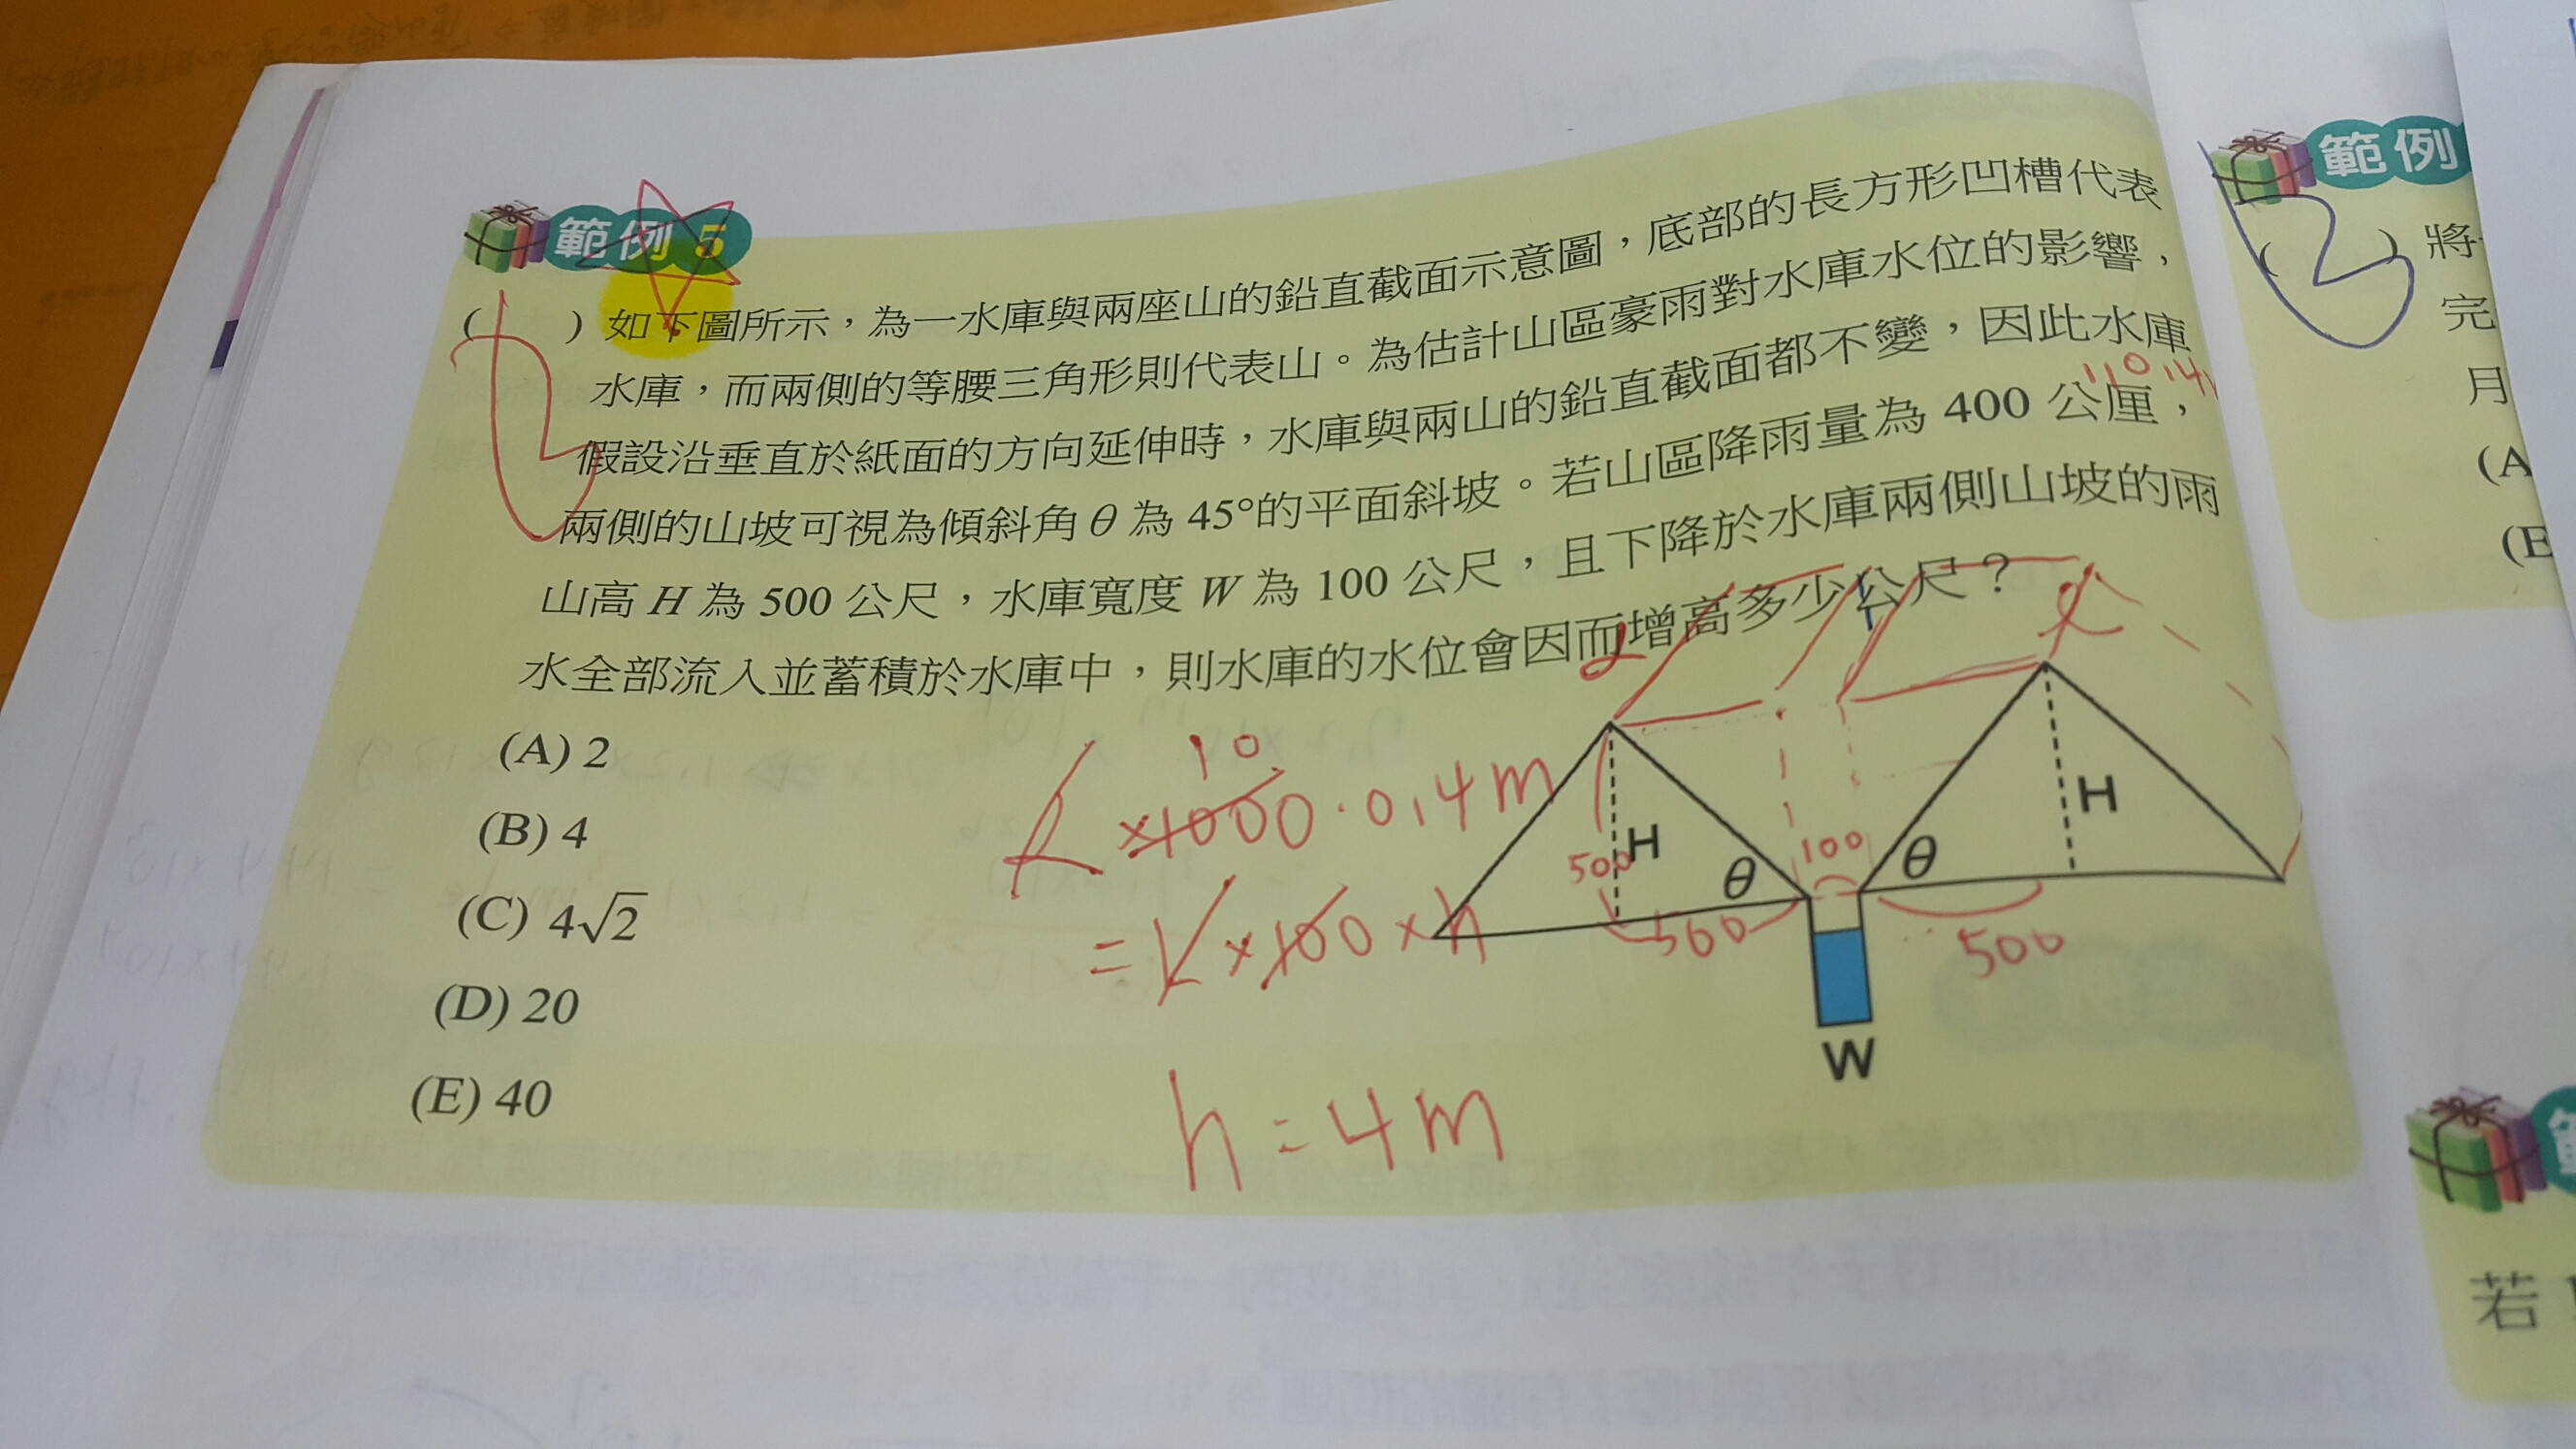 範例 5
( ) 如下圖所示，為一水庫與兩座山的鉛直截面示意圖，底部的長方形凹槽代表
水庫，而兩側的等腰三角形則代表山。為估計山區豪雨對水庫水位的影響，
假設沿垂直於紙面的方向延伸時，水庫與兩山的鉛直截面都不變，因此水庫
兩側的山坡可視為傾斜角 θ 為 45°的平面斜坡。若山區降雨量為 400 公厘，
山高 H 為 500 公尺，水庫寬度 W 為 100 公尺，且下降於水庫兩側山坡的雨
水全部流入並蓄積於水庫中，則水庫的水位會因而增高多少公尺？
(A) 2
(B) 4
(C) 4√2
(D) 20
(E) 40
10
ℓ×1000·0.4m
=ℓ×100×h
h=4m
H
500
θ
500
100
θ
H
500
W
範例
( ) 將
完
月
(A
(E
若